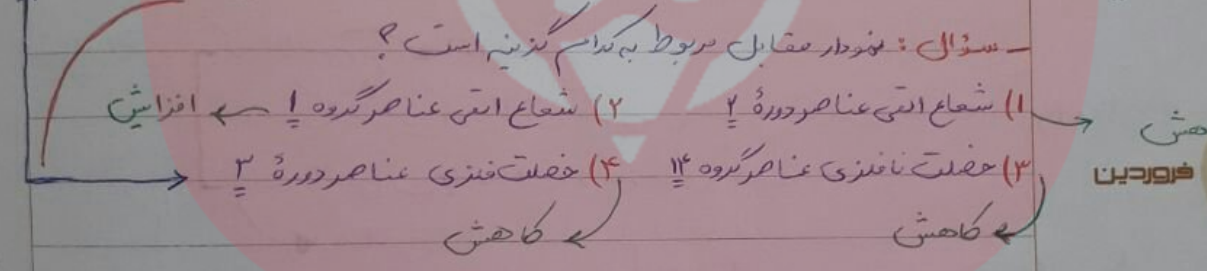 - سؤال : نمودار مقابل مربوط به کدام گزینه است ؟
۱) شعاع اتمی عناصر دورهٔ ۲ ۲) شعاع اتمی عناصر گروه ۱ افزایش
هش
۳) خصلت نافلزی عناصر گروه ۱۴ ۴) خصلت فلزی عناصر دورهٔ ۳
فروردین
کاهش کاهش